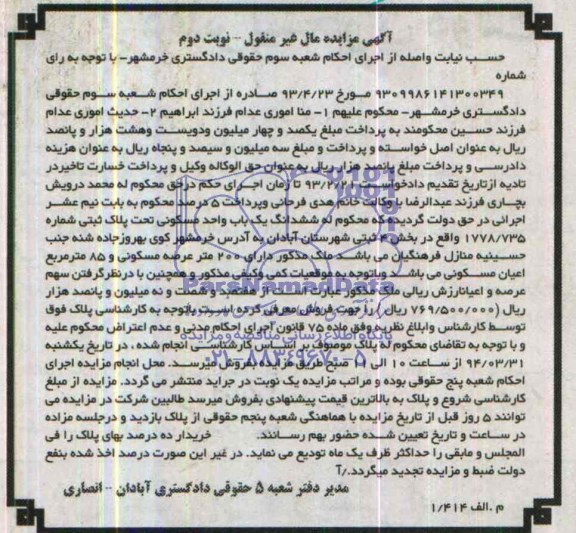 آگهی مزایده مال غیر منقول -- نوبت دوم
حسب نیابت واصله از اجرای احکام شعبه سوم حقوقی دادگستری خرمشهر- با توجه به رای
شماره
۹۳۰۹۹۸۶۱۴۱۳۰۰۳۴۹ مورخ ۹۳/۴/۲۳ صادره از اجرای احکام شعبه سوم حقوقی
دادگستری خرمشهر- محکوم علیهم ۱- منا اموری عدام فرزند ابراهیم ۲- حدیث اموری عدام
فرزند حسین محکومند به پرداخت مبلغ یکصد و چهار میلیون ودویست وهشت هزار و پانصد
ریال به عنوان اصل خواسته و پرداخت و مبلغ سه میلیون و سیصد و پنجاه ریال به عنوان هزینه
دادرسی و پرداخت مبلغ پانصد هزار ریال به عنوان حق الوکاله وکیل و پرداخت خسارت تاخیردر
تادیه ازتاریخ تقدیم دادخواست ۹۳/۲/۲۱ تا زمان اجرای حکم درحق محکوم له محمد درویش
بچاری فرزند عبدالرضا با وکالت خانم هدی فرحانی وپرداخت ۵ درصد محکوم به بابت نیم عشر
اجرائی در حق دولت گردیده که محکوم له ششدانگ یک باب واحد مسکونی تحت پلاک ثبتی شماره
۱۷۷۸/۷۳۵ واقع در بخش ۴ ثبتی شهرستان آبادان به آدرس خرمشهر کوی بهروزجاده شنه جنب
حسینیه منازل فرهنگیان می باشد ملک مذکور دارای ۲۰۰ متر عرصه مسکونی و ۸۵ مترمربع
اعیان مسکونی می باشد وباتوجه به موقعیات کمی وکیفی مذکور و همچنین با درنظرگرفتن سهم
عرصه و اعیانارزش ریالی ملک مذکور عبارت است از هفتصد و شصت و نه میلیون و پانصد هزار
ریال (۷۶۹/۵۰۰/۰۰۰ ریال) را جهت فروش معرفی کرده است باتوجه به کارشناسی پلاک فوق
توسط کارشناس وابلاغ نظریه وفق ماده ۷۵ قانون اجرای احکام مدنی و عدم اعتراض محکوم علیه
و با توجه به تقاضای محکوم له پلاک موصوف بر اساس کارشناسی انجام شده ، در تاریخ یکشنبه
۹۴/۰۳/۳۱ از ساعت ۱۰ الی ۱۱ صبح طریق مزایده بفروش میرسد. محل انجام مزایده اجرای
احکام شعبه پنج حقوقی بوده و مراتب مزایده یک نوبت در جراید منتشر می گردد. مزایده از مبلغ
کارشناسی شروع و پلاک به بالاترین قیمت پیشنهادی بفروش میرسد طالبین شرکت در مزایده می
توانند ۵ روز قبل از تاریخ مزایده با هماهنگی شعبه پنجم حقوقی از پلاک بازدید و درجلسه مزاده
در ساعت و تاریخ تعیین شده حضور بهم رسانند. خریدار ده درصد بهای پلاک را فی
المجلس و مابقی را حداکثر ظرف یک ماه تودیع می نماید. در غیر این صورت درصد اخذ شده بنفع
دولت ضبط و مزایده تجدید میگردد./آ
مدیر دفتر شعبه ۵ حقوقی دادگستری آبادان -- انصاری
م .الف ۱/۴۱۴
ParsNamadData
پایگاه اطلاع رسانی مناقصه و مزایده
۰۲۱-۸۸۳۴۹۶۷۰-۵